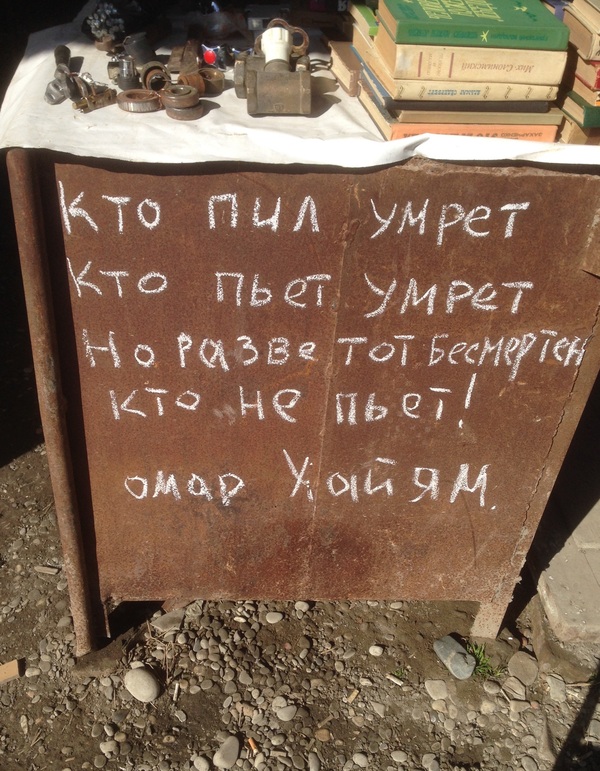 Мир Словинский
кто пил умрет
кто пьет умрет
Но разве тот бесмертен
кто не пьет!
омар Хайям.